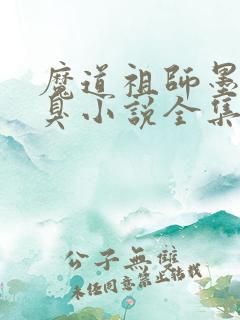 魔道祖師墨
臭小說全集
公子無雙
未经同意禁止转载